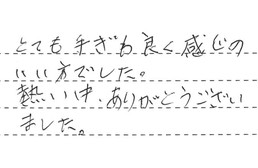 とても手ぎわ良く感じの
いい方でした。
熱い中、ありがとうござい
ました。